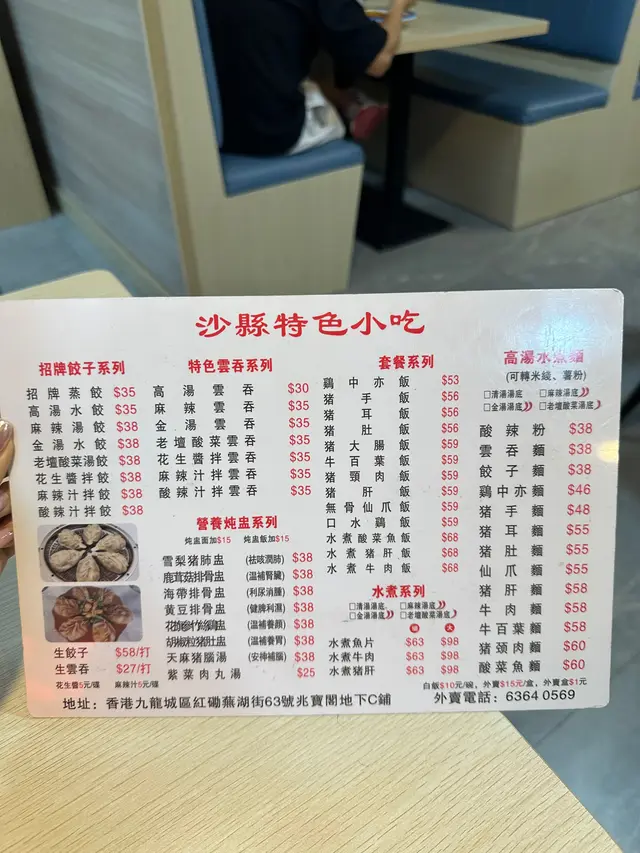 沙縣特色小吃
招牌餃子系列
招牌蒸餃 $35
高湯水餃 $35
麻辣湯餃 $38
金湯水餃 $38
老壇酸菜湯餃 $38
花生醬拌餃 $38
麻辣汁拌餃 $38
酸辣汁拌餃 $38
生餃子 $58/打
生雲吞 $27/打
花生醬5元/碟 麻辣汁5元/碟
特色雲吞系列
高湯雲吞 $30
麻辣雲吞 $35
金湯雲吞 $35
老壇酸菜雲吞 $35
花生醬拌雲吞 $35
麻辣汁拌雲吞 $35
酸辣汁拌雲吞 $35
營養炖盅系列
炖盅面加$15 炖盅飯加$15
雪梨豬肺盅 (祛咳潤肺) $38
鹿茸菇排骨盅 (溫補腎臟) $38
海帶排骨盅 (利尿消腫) $38
黄豆排骨盅 (健脾利濕) $38
(溫補養顏) $38
胡椒粒豬肚盅 (溫補養胃) $38
天麻豬腦湯 (安神補腦) $38
紫菜肉丸湯 $25
套餐系列
鷄中亦飯 $53
豬手飯 $56
豬耳飯 $56
豬肚飯 $56
豬大腸飯 $59
牛百葉飯 $59
豬頸肉飯 $59
豬肝飯 $59
無骨仙爪飯 $59
口水鷄飯 $59
水煮酸菜魚飯 $68
水煮豬肝飯 $68
水煮牛肉飯 $68
水煮系列
□清湯湯底 □麻辣湯底
□金湯湯底 □老壇酸菜湯底
細 大
水煮魚片 $63 $98
水煮牛肉 $63 $98
水煮豬肝 $63 $98
高湯水煮麵
(可轉米綫、薯粉)
□清湯湯底 □麻辣湯底
□金湯湯底 □老壇酸菜湯底
酸辣粉 $38
雲吞麵 $38
餃子麵 $38
鷄中亦麵 $46
豬手麵 $48
豬耳麵 $55
豬肚麵 $55
仙爪麵 $55
豬肝麵 $58
牛肉麵 $58
牛百葉麵 $58
豬頸肉麵 $60
酸菜魚麵 $60
白飯$10元/碗、外賣$15元/盒，外賣盒$1元
地址：香港九龍城區紅磡蕪湖街63號兆寶閣地下C鋪
外賣電話：6364 0569